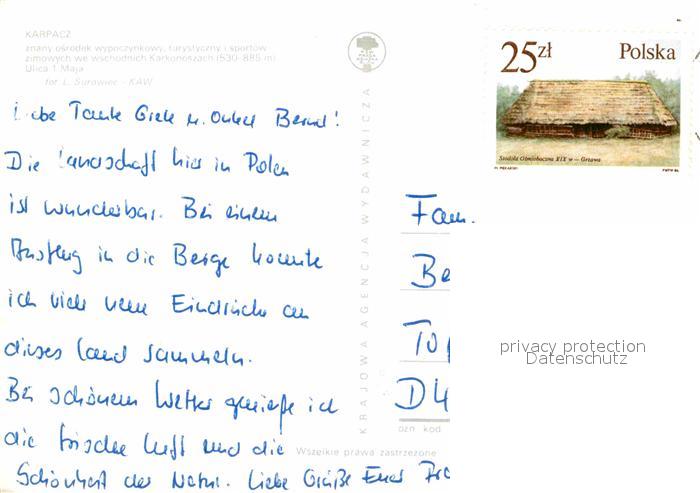 KARPACZ
znany ośrodek wypoczynkowy, turystyczny i sportów
zimowych we wschodnich Karkonoszach (530–885 m)
Ulica 1 Maja
fot. L. Surowiec - KAW
Liebe Tante Grete u. Onkel Bernd!
Die Landschaft hier in Polen
ist wunderbar. Bei einem
Ausflug in die Berge konnte
ich viele neue Eindrücke an
dieses Land sammeln.
Bei schönem Wetter genieße ich
die frische Luft und die
Schönheit der Natur. Liebe Grüße Euer
KRAJOWA AGENCJA WYDAWNICZA
Wszelkie prawa zastrzeżone
25 zł Polska
Stodoła Ośmioboczna XIX w — Grzawa
Fam.
Be
D4
ozn. kod
privacy protection
Datenschutz